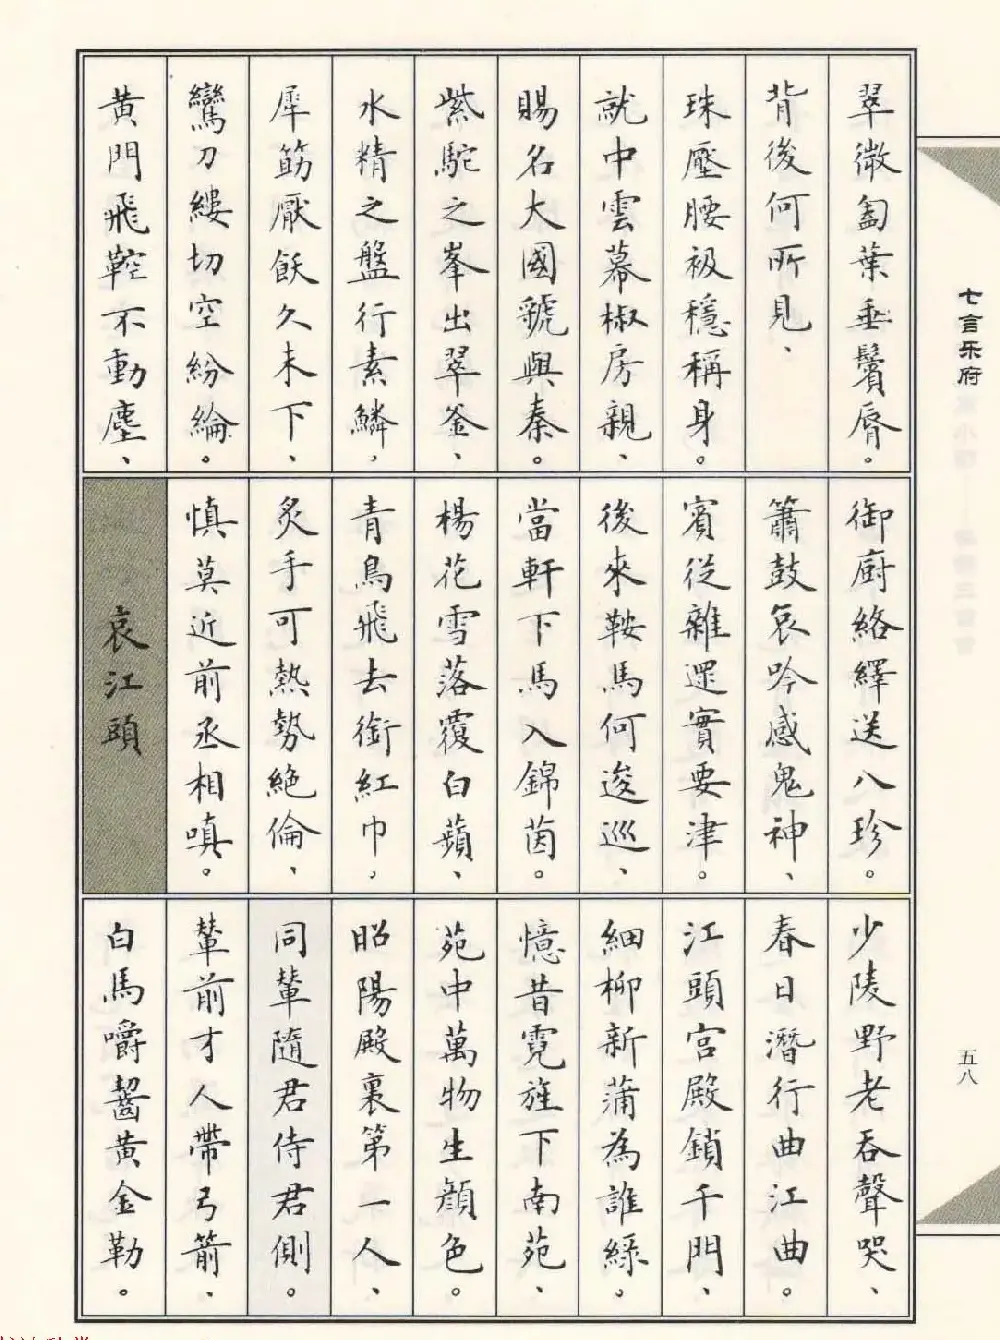 翠微匎葉垂鬢脣。
背後何所見、
珠壓腰衱穩稱身。
就中雲幕椒房親、
賜名大國虢與秦。
紫駝之峯出翠釜、
水精之盤行素鱗，
犀筯厭飫久未下、
鸞刀縷切空紛綸。
黄門飛鞚不動塵、
御廚絡繹送八珍。
簫鼓哀吟感鬼神、
賓從雜遝實要津。
後來鞍馬何逡巡、
當軒下馬入錦茵。
楊花雪落覆白蘋、
青鳥飛去銜紅巾，
炙手可熱勢絶倫、
慎莫近前丞相嗔。
哀江頭
少陵野老吞聲哭、
春日潛行曲江曲。
江頭宮殿鎖千門、
細柳新蒲為誰緑。
憶昔霓旌下南苑、
苑中萬物生顔色。
昭陽殿裏第一人、
同輦隨君侍君側。
輦前才人帶弓箭、
白馬嚼齧黄金勒。
七言乐府
五八